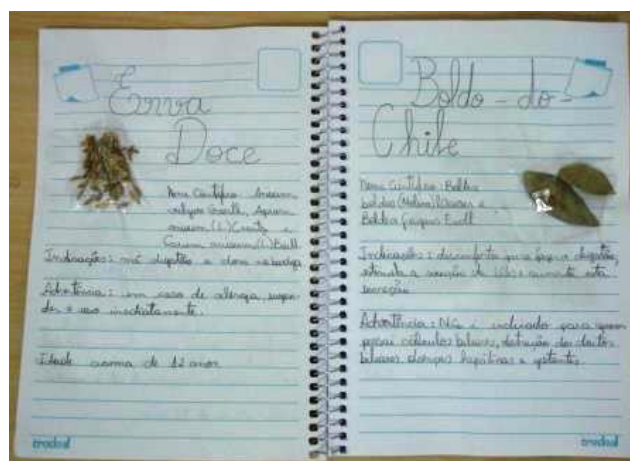 Erva
Doce
Nome Científico: Anisum
vulgare Gaerth, Apium
anisum (L.) Crantz e
Carum anisum (L.) Baill
Indicações: má digestão e dores na barriga
Advertência: em caso de alergia, suspen-
der o uso imediatamente.
Idade acima de 12 anos
tradal
Boldo - do -
Chile
Nome Científico: Boldea
boldus (Molina) Looser e
Boldea fragrans Endl
Indicações: desconforto que faz a digestão,
estimula a secreção da bile e aumenta esta
secreção
Advertência: Não é indicado para quem
possui cálculos biliares, obstrução dos ductos
biliares, doenças hepáticas e gestantes.